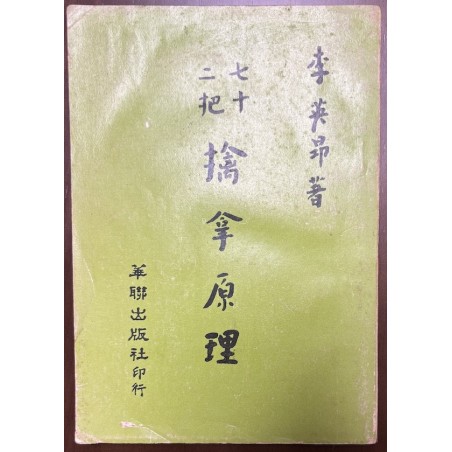 李英昂著
七十二把
擒拿原理
華聯出版社印行